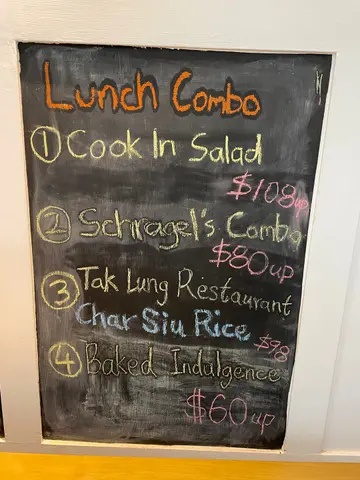 Lunch Combo
① Cook In Salad
$108up
② Schragel's Combo
$80up
③ Tak Lung Restaurant
Char Siu Rice $98
④ Baked Indulgence
$60up